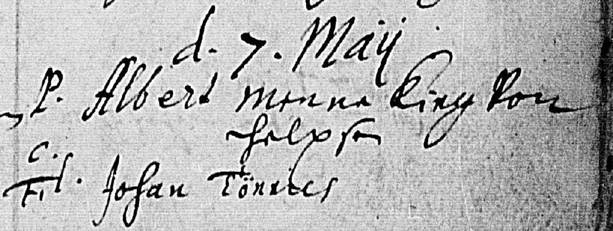 d. 7. Maij
P. Albert Monneking Von
helpsen
C.
F. Johan Tönnies